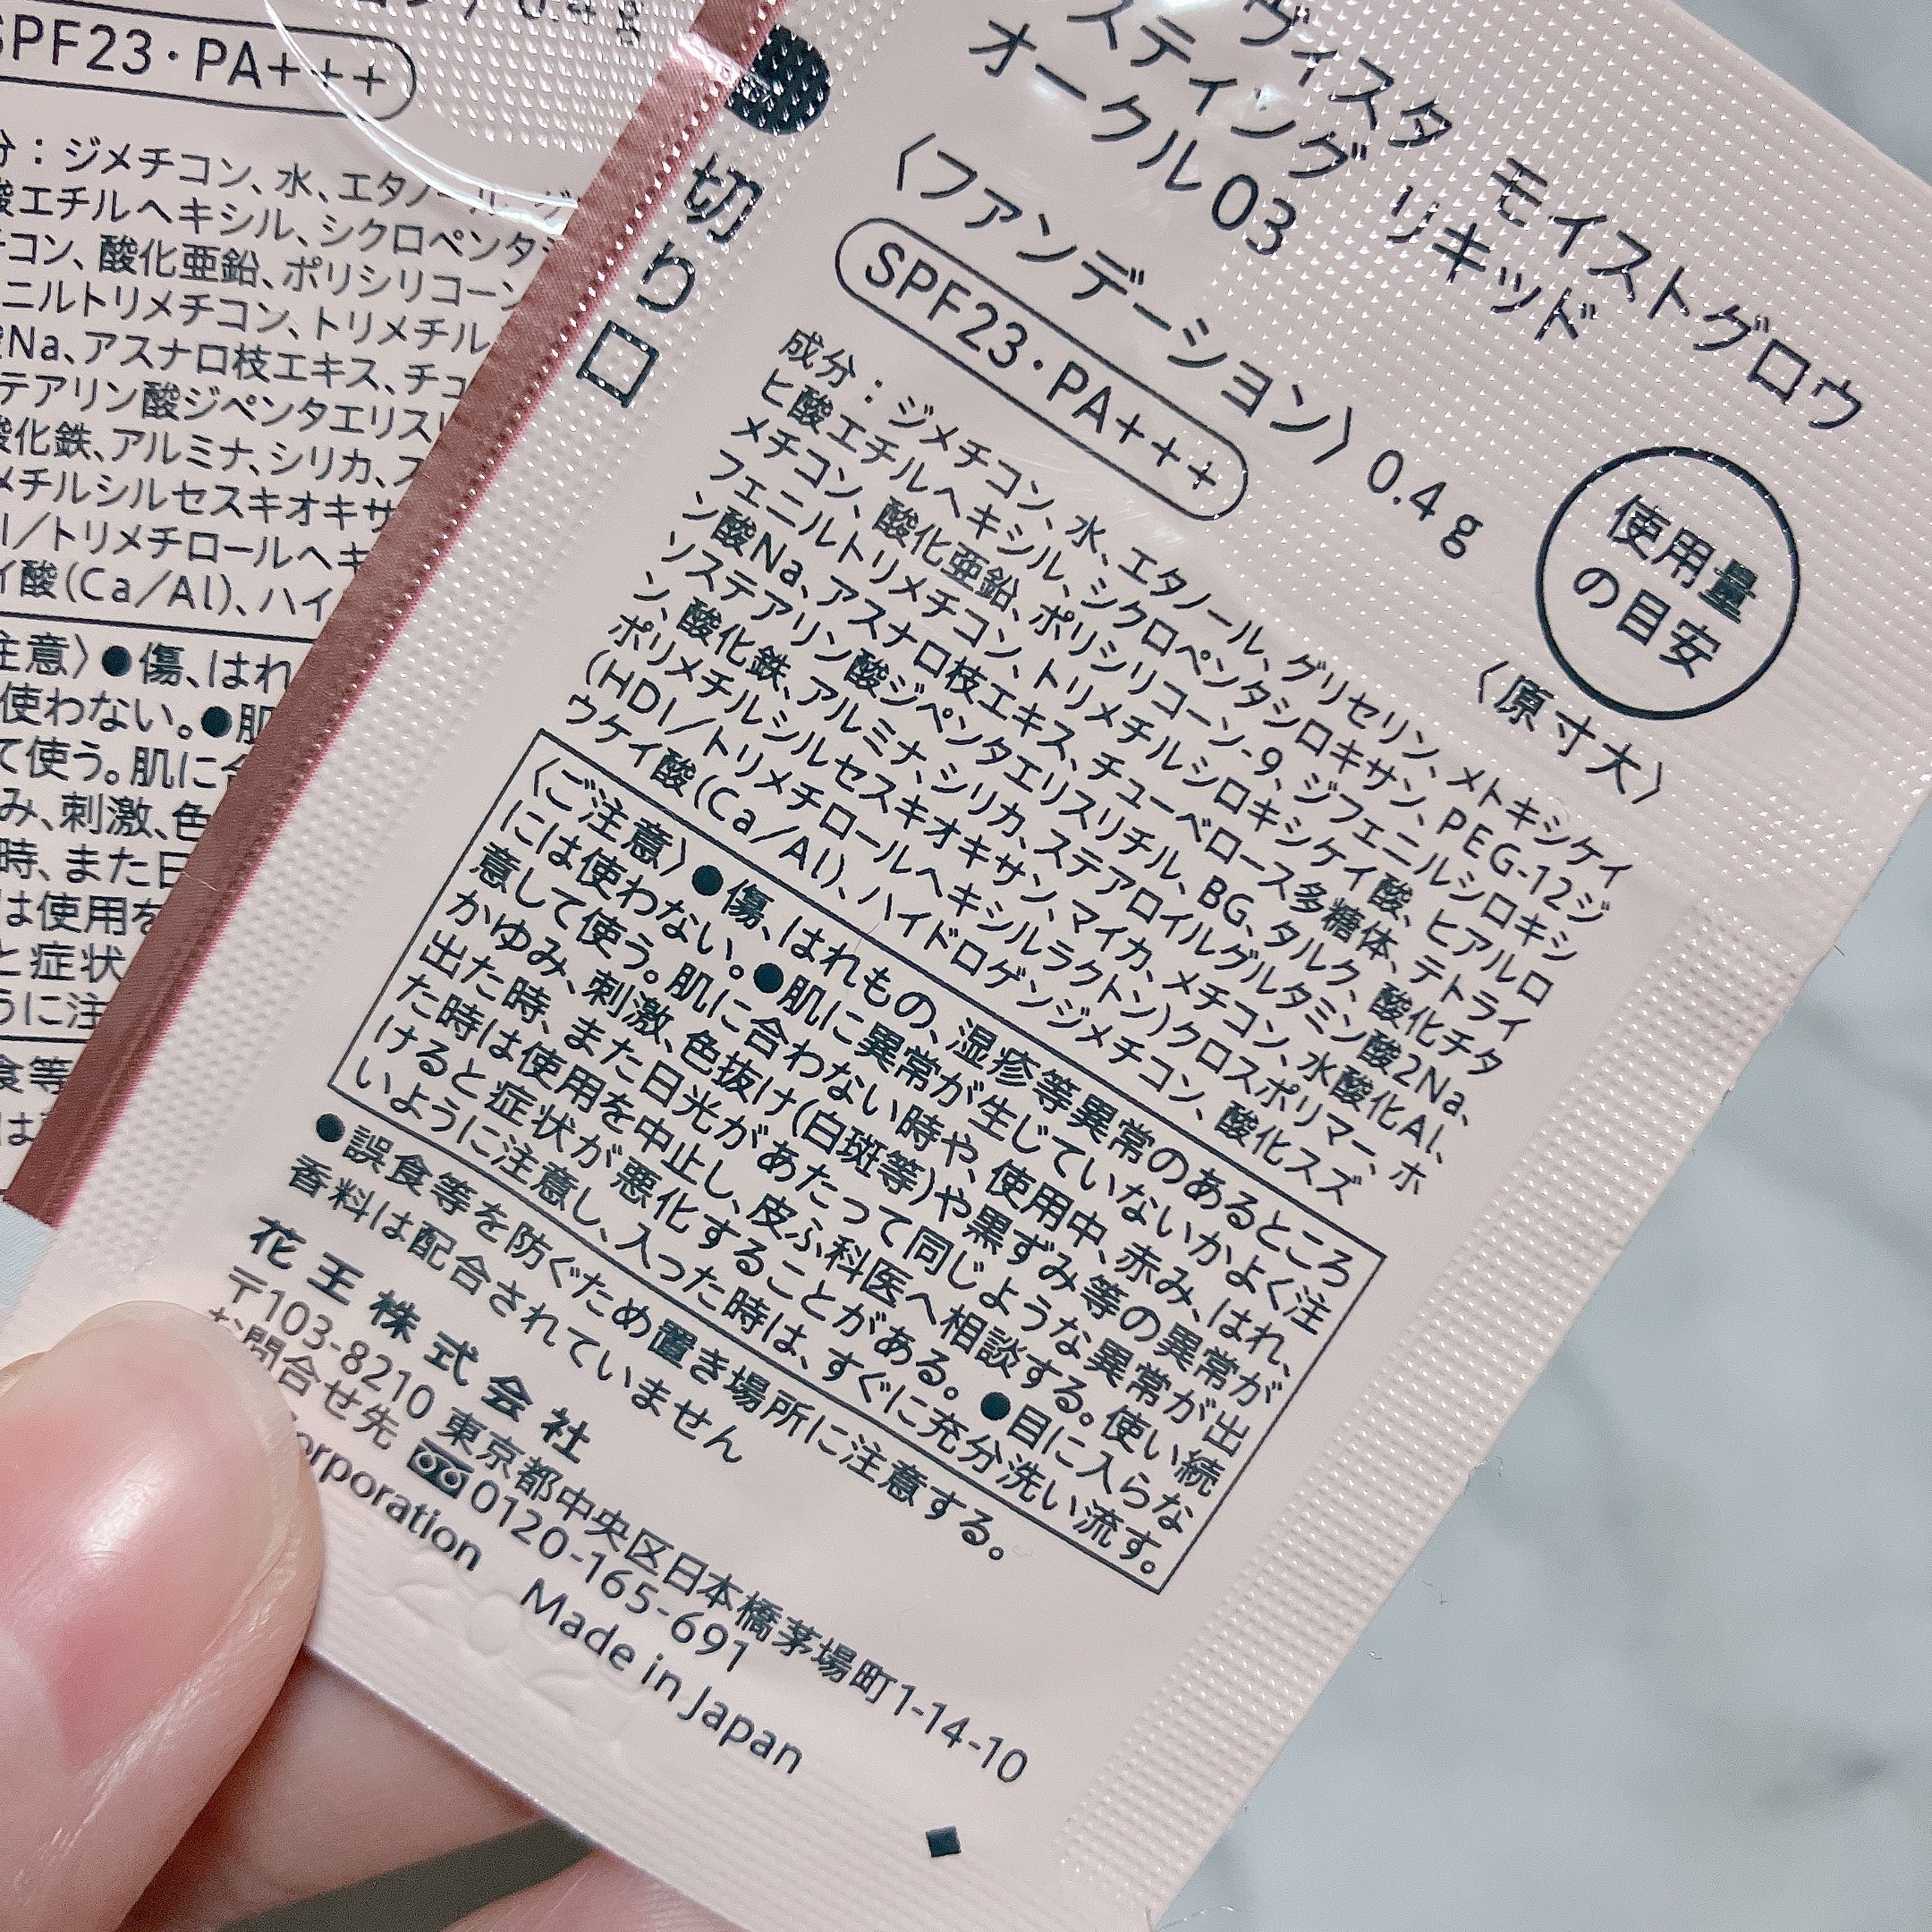 ヴィスタ モイストグロウ
スティング リキッド
オークル03
〈ファンデーション〉 0.4g
SPF23・PA+++
使用量
の目安
〈原寸大〉
切り口
成分：ジメチコン、水、エタノール、グリセリン、メトキシケイ
ヒ酸エチルヘキシル、シクロペンタシロキサン、PEG-12ジ
メチコン、酸化亜鉛、ポリシリコーン-9、ジフェニルシロキシ
フェニルトリメチコン、トリメチルシロキシケイ酸、ヒアルロ
ン酸Na、アスナロ枝エキス、チューベロース多糖体、テトライ
ソステアリン酸ジペンタエリスリチル、BG、タルク、酸化チタ
ン、酸化鉄、アルミナ、シリカ、ステアロイルグルタミン酸2Na、
ポリメチルシルセスキオキサン、マイカ、メチコン、水酸化Al、
(HDI/トリメチロールヘキシルラクトン)クロスポリマー、ホ
ウケイ酸(Ca/Al)、ハイドロゲンジメチコン、酸化スズ
〈ご注意〉●傷、はれもの、湿疹等異常のあるところ
には使わない。●肌に異常が生じていないかよく注
意して使う。肌に合わない時や、使用中、赤み、はれ、
かゆみ、刺激、色抜け(白斑等)や黒ずみ等の異常が
出た時、また日光があたって同じような異常が出
た時は使用を中止し、皮ふ科医へ相談する。使い続
けると症状が悪化することがある。●目に入らな
いように注意し、入った時は、すぐに充分洗い流す。
●誤食等を防ぐため置き場所に注意する。
香料は配合されていません
花王株式会社
〒103-8210 東京都中央区日本橋茅場町1-14-10
お問合せ先 0120-165-691
orporation Made in Japan
SPF23・PA+++
分：ジメチコン、水、エタノール、グ
酸エチルヘキシル、シクロペンタシ
チコン、酸化亜鉛、ポリシリコーン
ニルトリメチコン、トリメチル
酸Na、アスナロ枝エキス、チュ
テアリン酸ジペンタエリスリ
酸化鉄、アルミナ、シリカ、ス
メチルシルセスキオキサ
I/トリメチロールヘキ
イ酸(Ca/Al)、ハイ
注意〉●傷、はれ
使わない。●肌
て使う。肌に合
み、刺激、色
時、また日
は使用を
と症状
うに注
食等